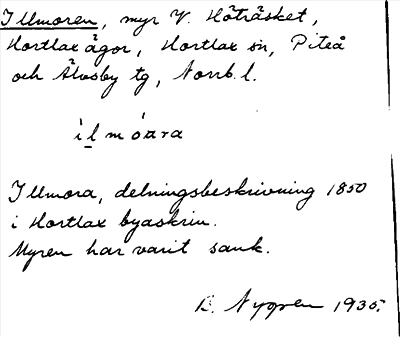 Illmoren, myr V. Höträsket,
Hortlax ägor, Hortlax sn, Piteå
och Älvsby tg, Norrb. l.
ìlmóʀra
Illmora, delningsbeskrivning 1850
i Hortlax byaskrin.
Myren har varit sank.
B. Nygren 1935.